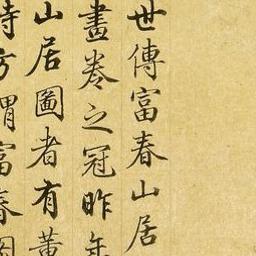 世傳富春山居
畫卷之冠昨年
山居圖者有黃
時方謂富春圖